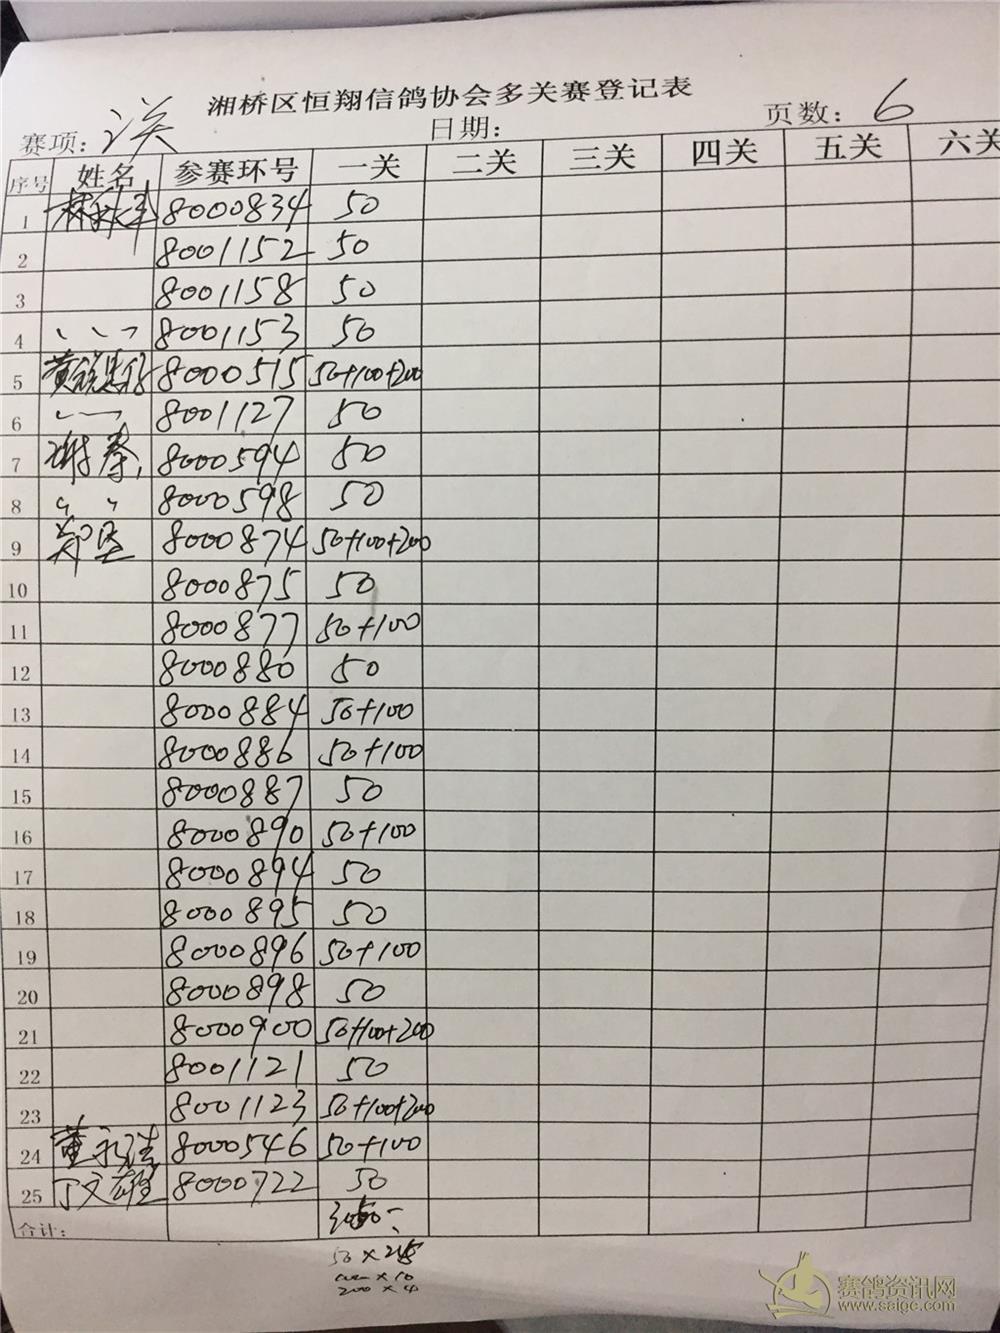 湘桥区恒翔信鸽协会多关赛登记表
赛项: 日期: 页数: 6
序号 姓名 参赛环号 一关 二关 三关 四关 五关 六关
1 8000834 50
2 8001152 50
3 8001158 50
4 、、、 8001153 50
5 8000515 50+100+200
6 8001127 50
7 8000594 50
8 8000598 50
9 8000874 50+100+200
10 8000875 50
11 8000877 50+100
12 8000880 50
13 8000884 50+100
14 8000886 50+100
15 8000887 50
16 8000890 50+100
17 8000894 50
18 8000895 50
19 8000896 50+100
20 8000898 50
21 8000900 50+100+200
22 8001121 50
23 8001123 50+100+200
24 8000546 50+100
25 丁文雄 8000722 50
合计:
50 × 25
100 × 10
200 × 4
赛鸽资讯网
www.saigc.com